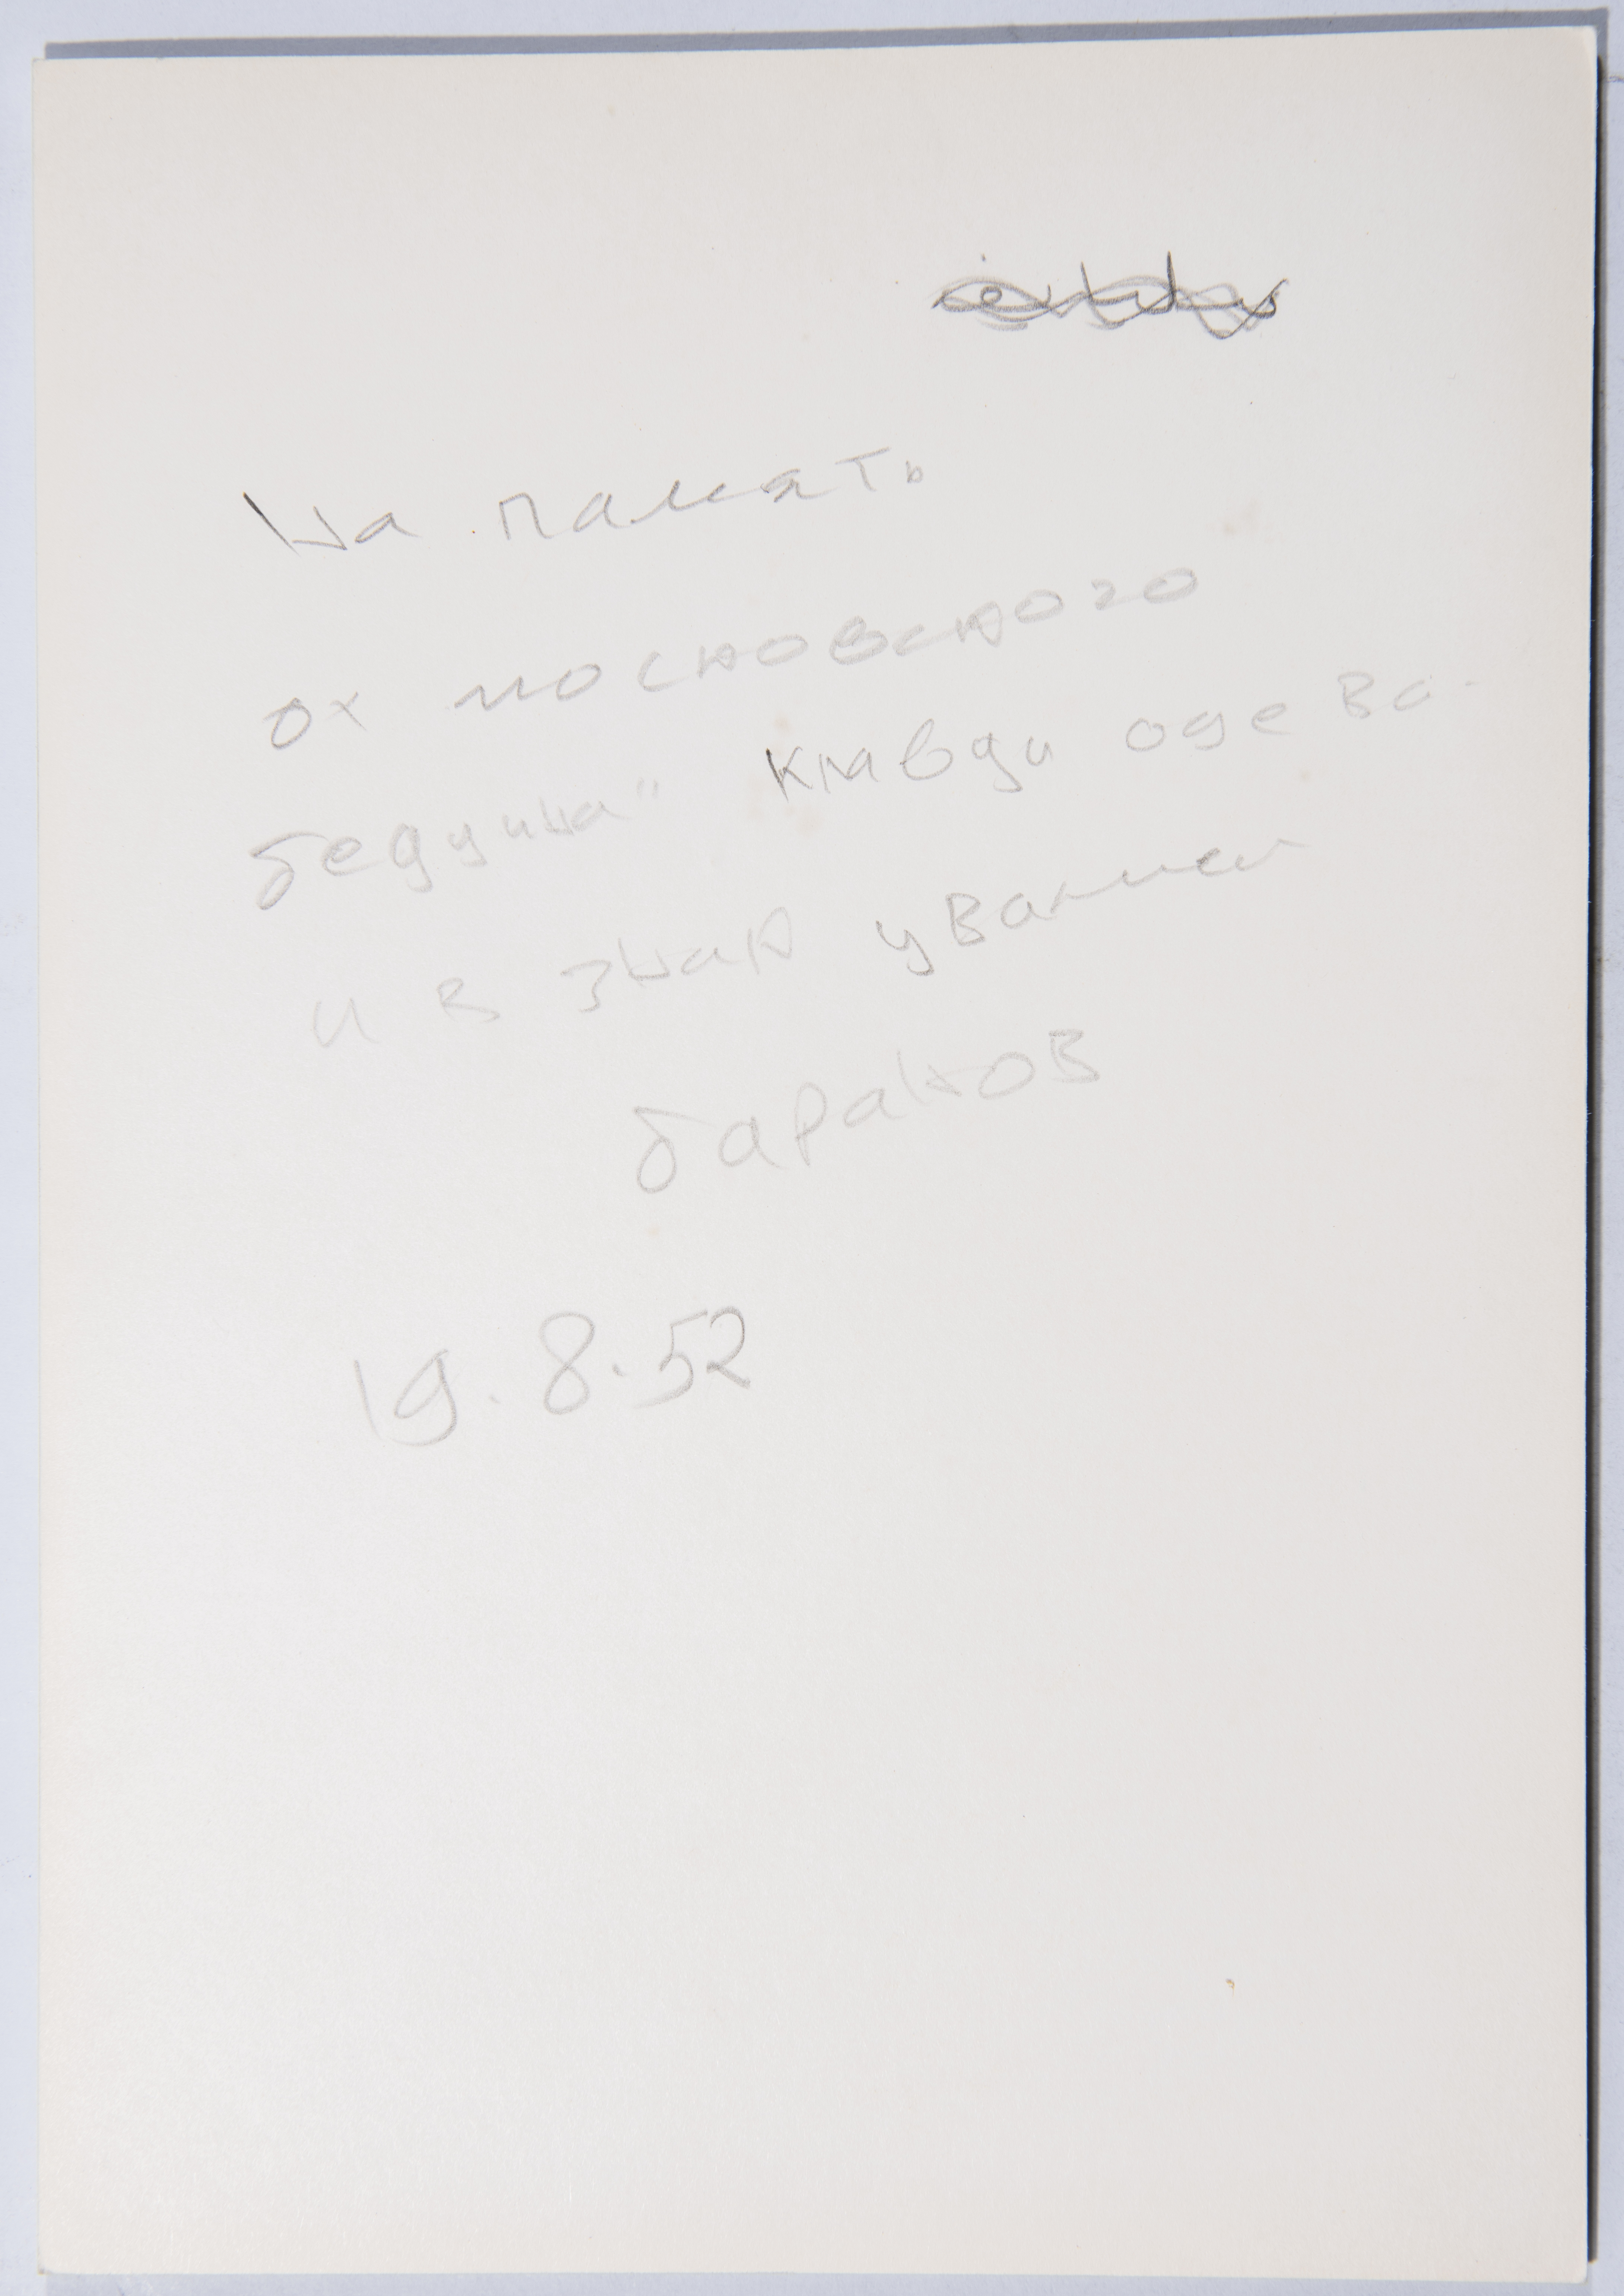 На память
от московского
бедуина" Клавди одева-
и в знак уважен
баранов
19.8.52